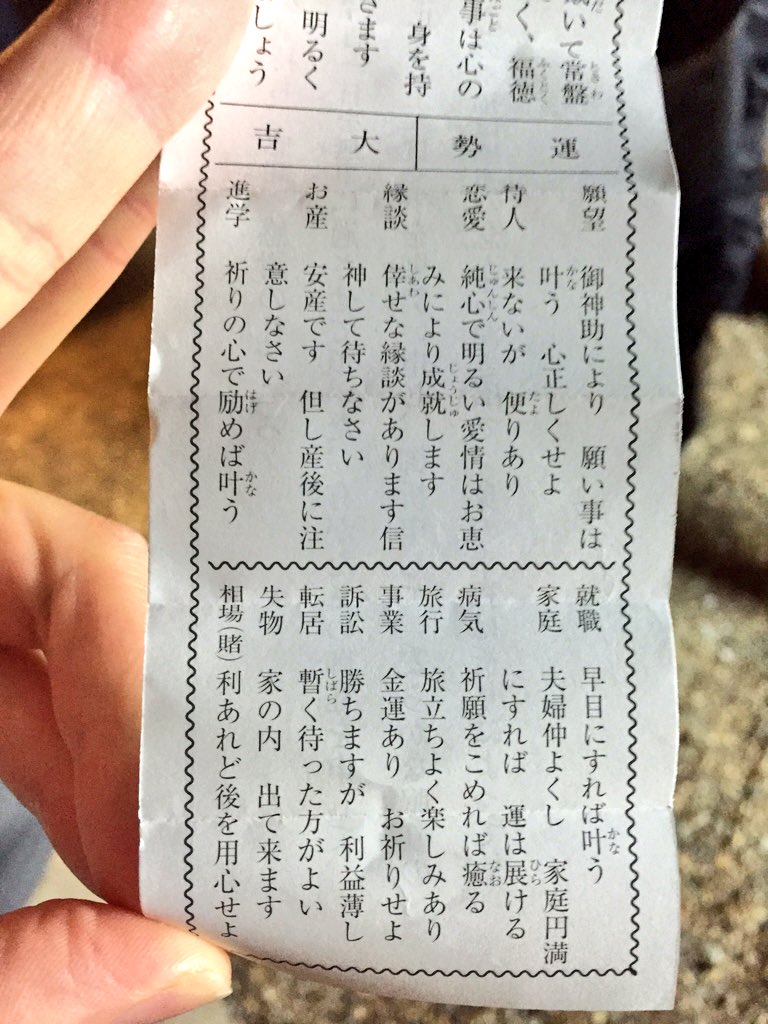 戴いて常盤
く、福徳
事は心の
身を持
きます
明るく
しょう
運勢 大吉
願望 御神助により 願い事は
叶う 心正しくせよ
待人 来ないが 便りあり
恋愛 純心で明るい愛情はお恵
みにより成就します
縁談 倖せな縁談があります信
神して待ちなさい
お産 安産です 但し産後に注
意しなさい
進学 祈りの心で励めば叶う
就職 早目にすれば叶う
家庭 夫婦仲よくし 家庭円満
にすれば 運は展ける
病気 祈願をこめれば癒る
旅行 旅立ちよく楽しみあり
事業 金運あり お祈りせよ
訴訟 勝ちますが 利益薄し
転居 暫く待った方がよい
失物 家の内 出て来ます
相場(賭) 利あれど後を用心せよ